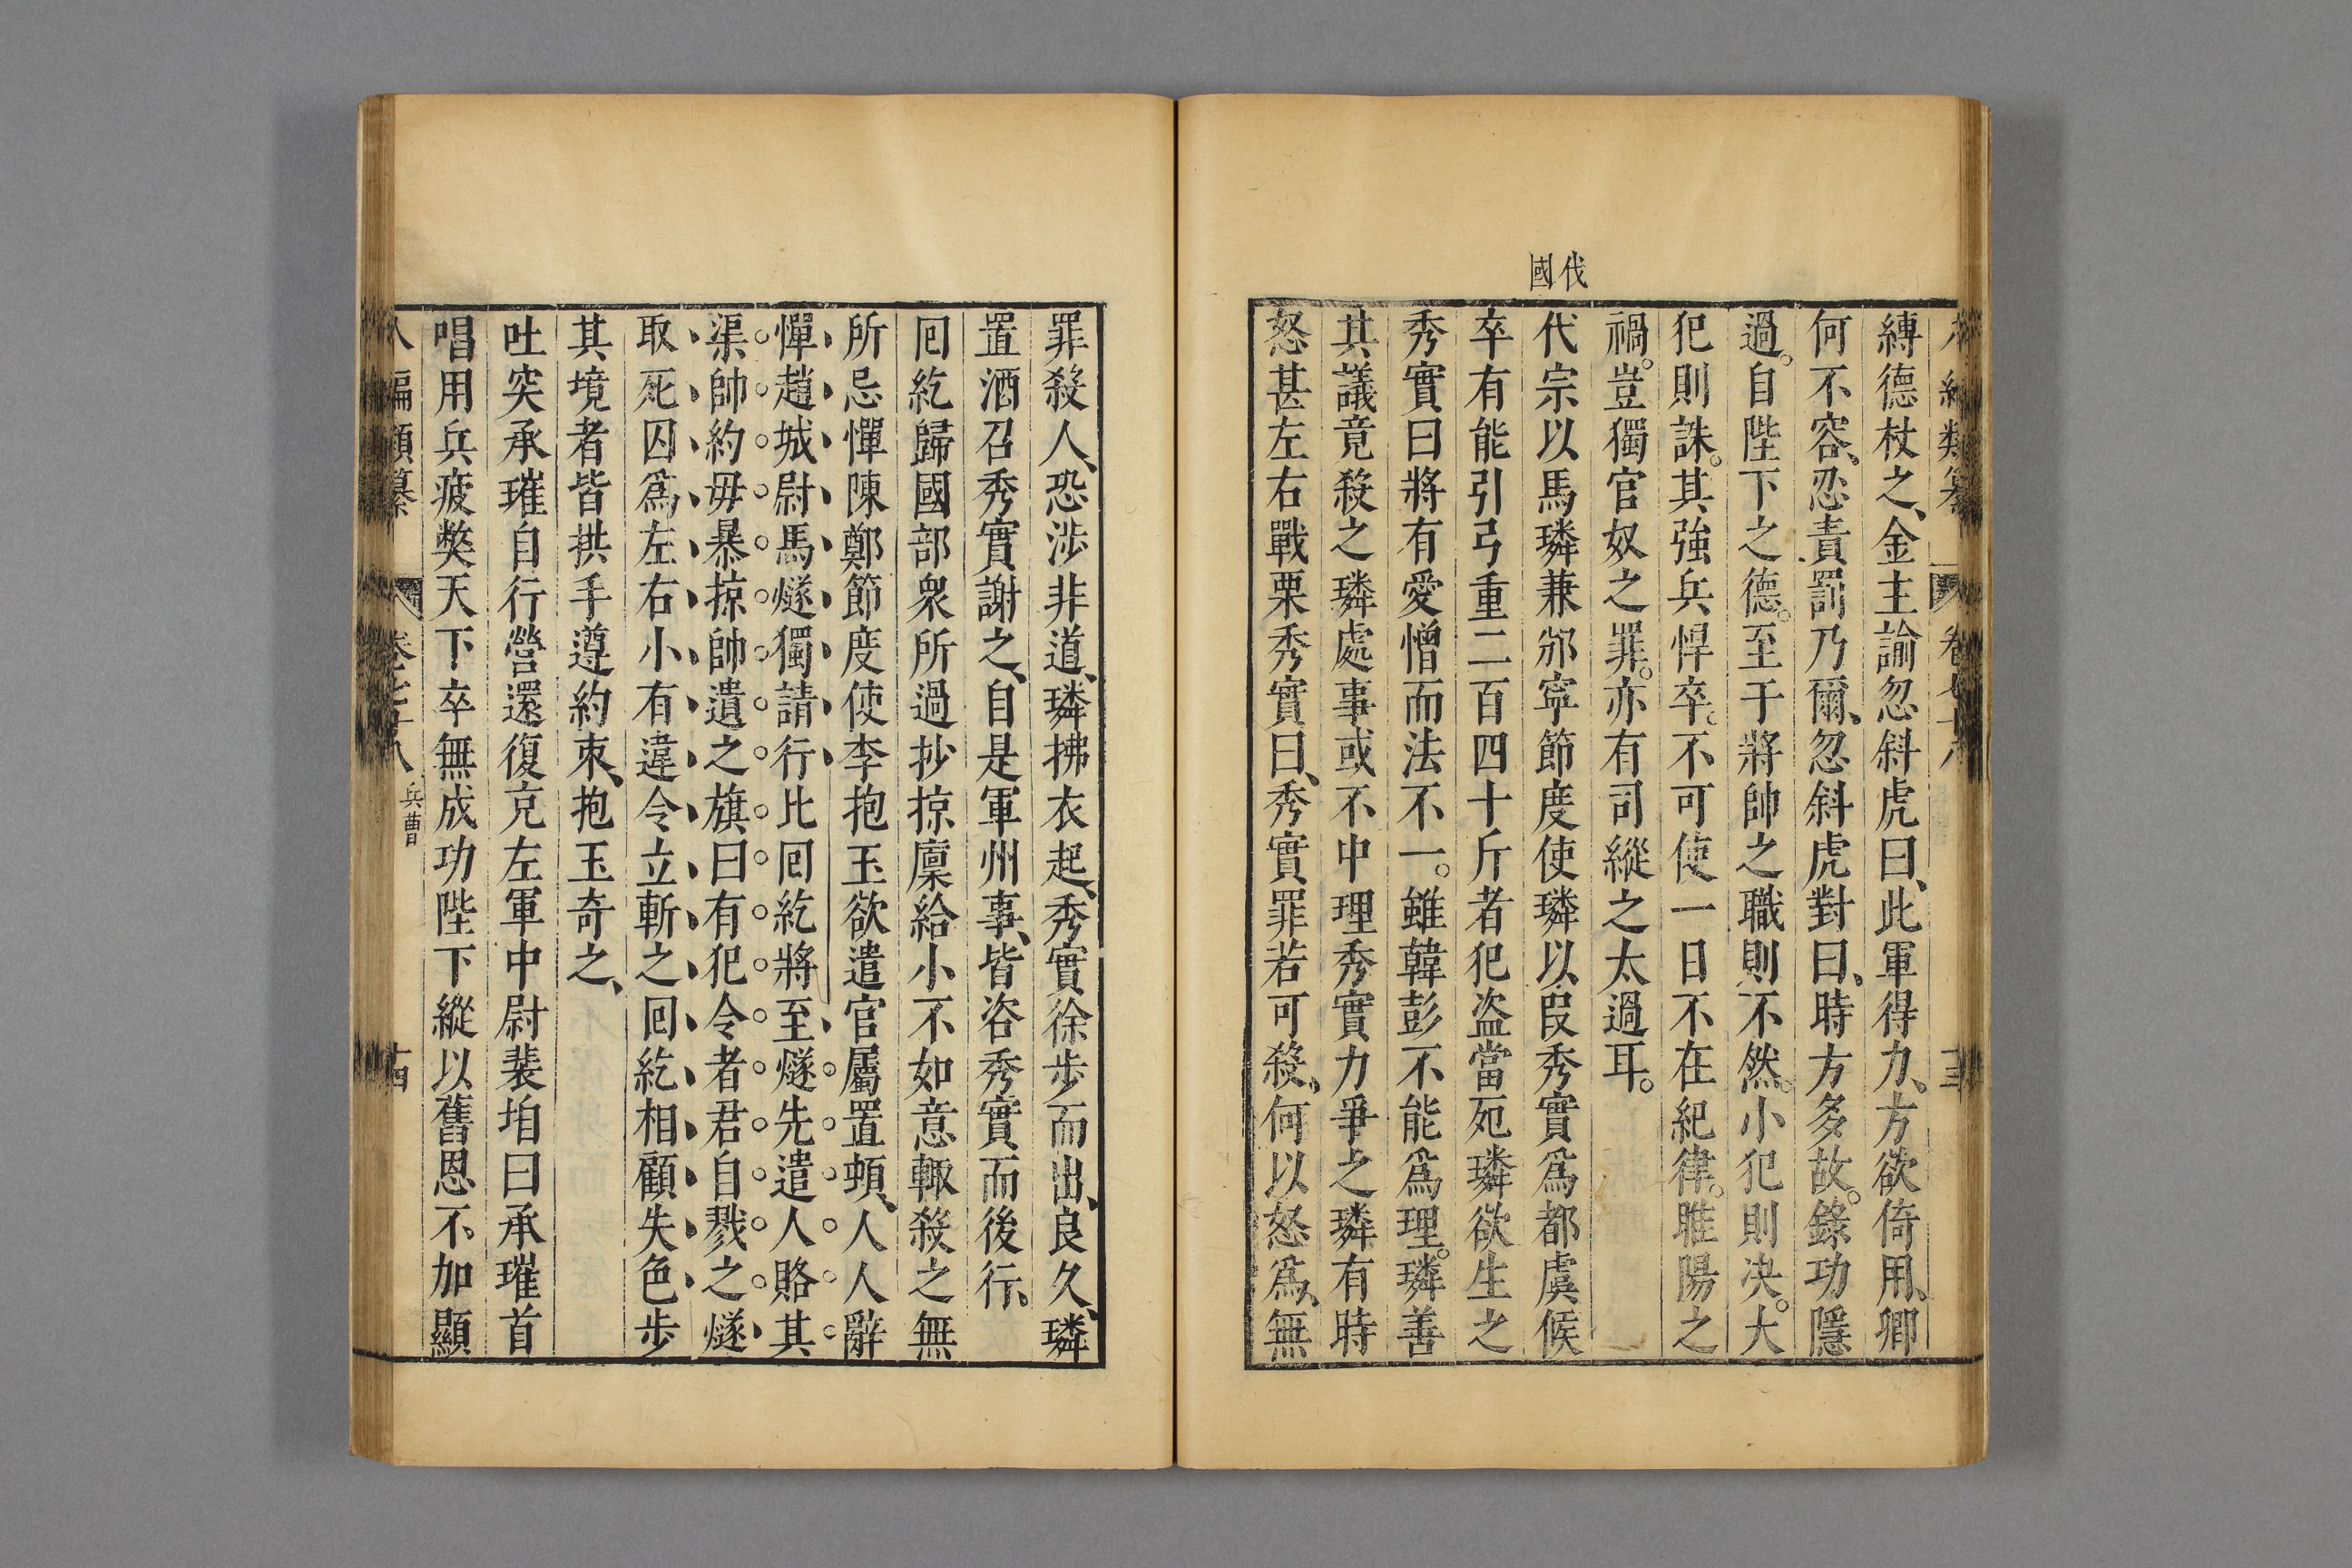 八編類纂 卷七十八 十三
縛德杖之、金主諭忽斜虎曰、此軍得力、方欲倚用、卿
何不容、忍責罰乃爾、忽斜虎對曰、時方多故。錄功隱
過。自陛下之德。至于將帥之職則不然。小犯則决。大
犯則誅。其強兵悍卒。不可使一日不在紀律。睢陽之
禍。豈獨官奴之罪。亦有司縱之太過耳。
伐國
代宗以馬璘兼邠寧節度使璘以段秀實爲都虞候
卒有能引弓重二百四十斤者犯盗當死璘欲生之
秀實曰將有愛憎而法不一。雖韓彭不能爲理。璘善
其議竟殺之璘處事或不中理秀實力爭之璘有時
怒甚左右戰栗秀實曰、秀實罪若可殺、何以怒爲、無
罪殺人、恐涉非道、璘拂衣起、秀實徐步而出、良久、璘
置酒召秀實謝之、自是軍州事、皆咨秀實而後行、
囘紇歸國部衆所過抄掠廩給小不如意輒殺之無
所忌憚陳鄭節度使李抱玉欲遣官屬置頓、人人辭
憚趙城尉馬燧獨請行比囘紇將至燧先遣人賂其
渠帥約毋暴掠帥遺之旗曰有犯令者君自戮之燧
取死囚爲左右小有違令立斬之囘紇相顧失色步
其境者皆拱手遵約束、抱玉奇之、
吐突承璀自行營還復克左軍中尉裴垍曰承璀首
唱用兵疲獘天下卒無成功陛下縱以舊恩不加顯
八編類纂 卷七十八 兵曹 十四